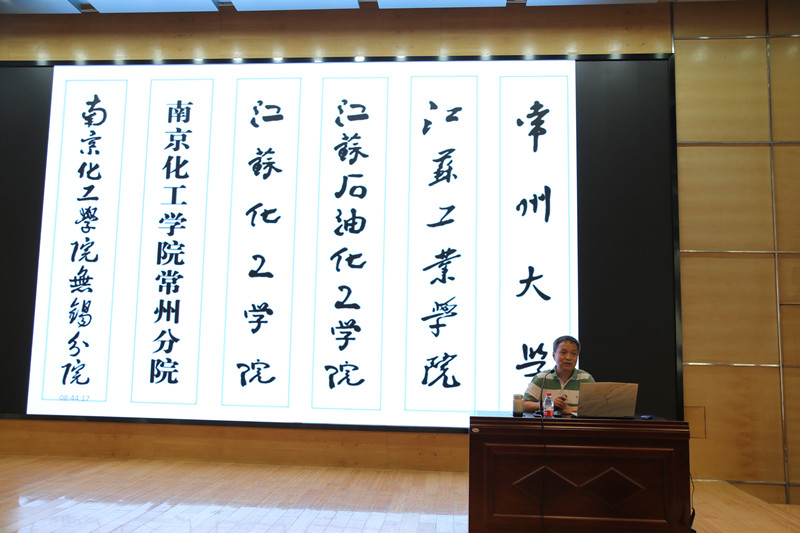 南京化工學院無錫分院
南京化工学院常州分院
江蘇化工学院
江蘇石油化工学院
江蘇工業學院
常州大学
08:44:17